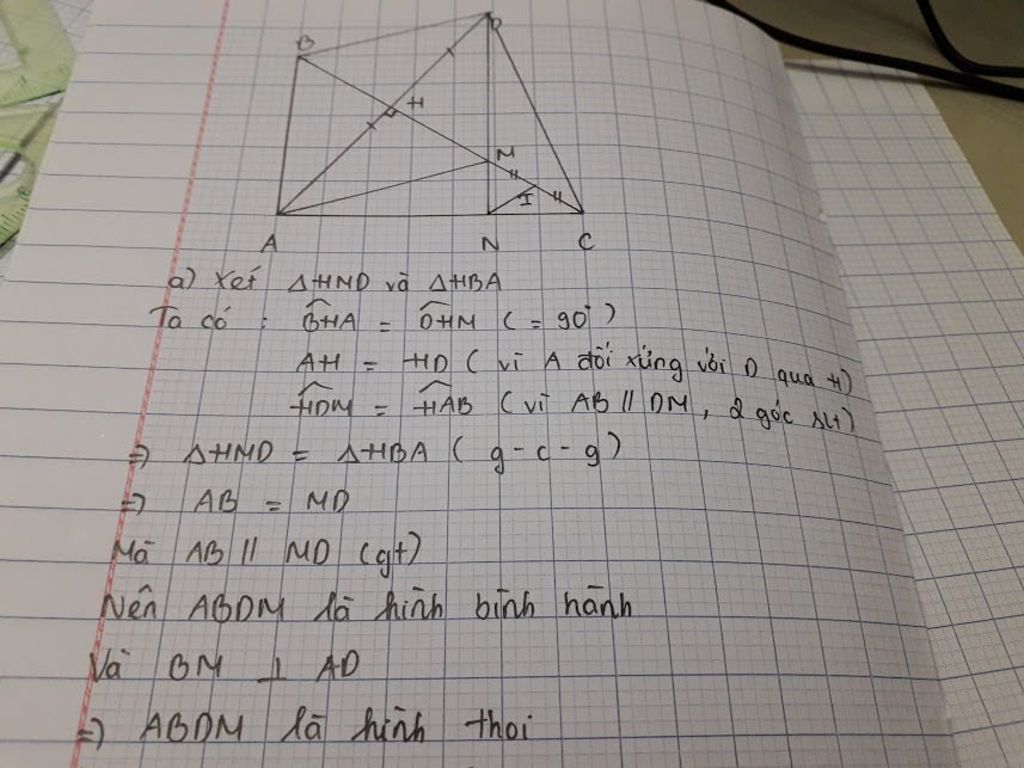 B
D
H
M
I
A N C
a) Xét ΔHMD và ΔHBA
Ta có : BHA = DHM ( = 90°)
AH = HD ( vì A đối xứng với D qua H)
HDM = HAB (vì AB // DM, 2 góc slt)
=> ΔHMD = ΔHBA ( g - c - g )
=> AB = MD
Mà AB // MD (gt)
Nên ABDM là hình bình hành
Và BM ⊥ AD
=> ABDM là hình thoi